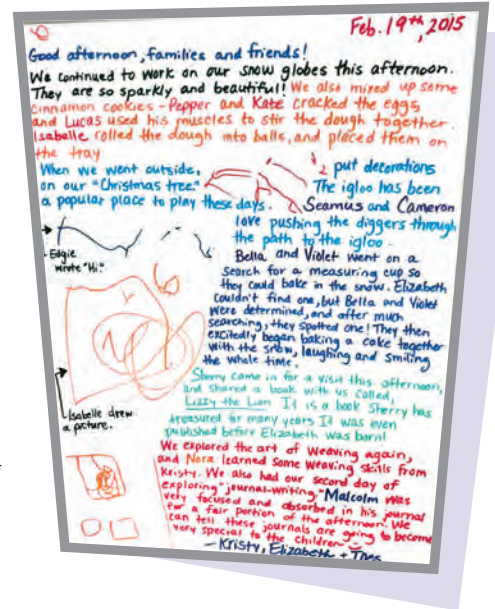 Feb. 19th, 2015
Good afternoon, families and friends!
We continued to work on our snow globes this afternoon.
They are so sparkly and beautiful! We also mixed up some
cinnamon cookies - Pepper and Kate cracked the eggs
and Lucas used his muscles to stir the dough together.
Isabelle rolled the dough into balls, and placed them on
the tray
When we went outside, put decorations
on our "Christmas tree." The igloo has been
a popular place to play these days. Seamus and Cameron
love pushing the diggers through
the path to the igloo.
Edgie
wrote "Hi."
Bella and Violet went on a
search for a measuring cup so
they could bake in the snow. Elizabeth
couldn't find one, but Bella and Violet
were determined, and after much
searching, they spotted one! They then
excitedly began baking a cake together
with the snow, laughing and smiling
the whole time.
Isabelle drew
a picture.
Sherry came in for a visit this afternoon,
and shared a book with us called,
Lizzy the Lion. It is a book Sherry has
treasured for many years. It was even
published before Elizabeth was born!
We explored the art of weaving again,
and Nora learned some weaving skills from
Kristy. We also had our second day of
exploring "journal-writing." Malcolm was
very focused and absorbed in his journal
for a fair portion of the afternoon. We
can tell these journals are going to become
very special to the children
- Kristy, Elizabeth +